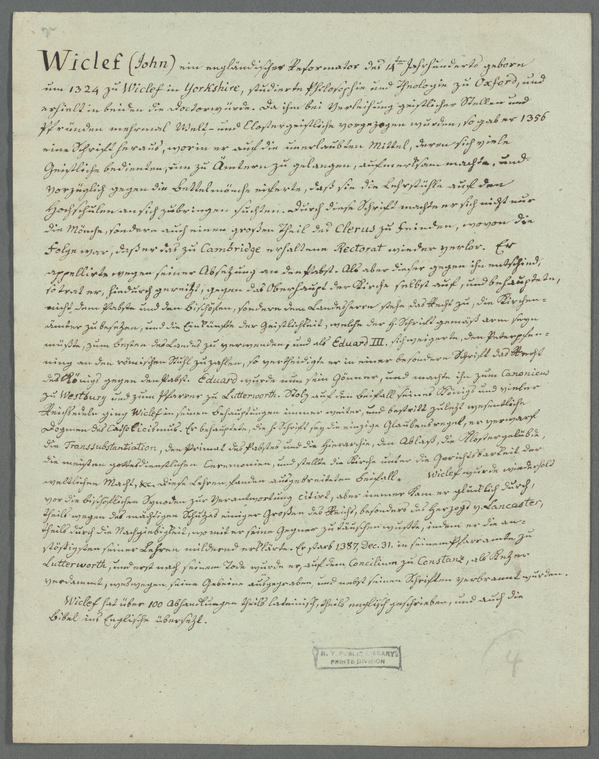 Wiclef (John) ein engländischer Reformator des 14ten Jahrhunderts geborn
um 1324 zu Wiclef in Yorkshire, studierte Philosophie und Theologie zu Oxford, und
erhielt in beiden die Doctorwürde. Da ihm bei Verleihung geistlicher Stellen und
Pfründen mehrmal Welt- und Clostergeistliche vorgezogen wurden, so gab er 1356
eine Schrift heraus, worin er auf die unerlaubten Mittel, deren sich viele
Geistliche bedienten, um zu Ämtern zu gelangen, aufmerksam machte, und
vorzüglich gegen die Bettelmönche eiferte, daß sie die Lehrstühle auf den
Hochschulen an sich zubringen suchten. Durch diese Schrift machte er sich nicht nur
die Mönche, sondern auch einen großen Theil des Clerus zu Feinden, wovon die
Folge war, daß er das zu Cambridge erhaltene Rectorat wieder verlor. Er
appellirte wegen seiner Absetzung an den Pabst. Als aber dieser gegen ihn entschied,
so trat er, hindurch gereitzt, gegen das Oberhaupt der Kirche selbst auf, und behauptete,
nicht dem Pabste und den Bischöfen, sondern dem Landesherrn stehe das Recht zu, die Kirchen-
ämter zu besetzen, und die Einkünfte der Geistlichkeit, welche der H. Schrift gemäß arm seyn
müßte, zum besten des Landes zu verwenden; und als Eduard III. sich weigerte, den Peterspfen-
ning an den römischen Stuhl zu zahlen, so vertheidigte er in einer besondern Schrift das Recht
des Königs gegen den Pabst. Eduard wurde nun sein Gönner, und machte ihn zum Canonicus
zu Westbury und zum Pfarrer zu Lutterworth. Stolz auf den Beifall seines Königs und vieler
Reichsedeln ging Wiclef in seinen Behauptungen immer weiter, und bestritt zuletzt wesentliche
Dogmen des Catholicismus. Er behauptete, die h. Schrift sey die einzige Glaubensregel, er verwarf
die Transsubstantiation, den Primat des Pabstes und die Hierarchie, den Ablaß, die Klostergelübde,
die meisten gottesdienstlichen Ceremonien, und stellte die Kirche unter die Gerichtsbarkeit der
weltlichen Macht, &c. Diese Lehren fanden ausgebreiteten Beifall. Wiclef wurde wiederholt
vor die bischöflichen Synoden zur Verantwortung citirt, aber immer kam er glücklich durch,
theils wegen des mächtigen Schutzes einiger Großen des Reichs, besonders des Herzogs v. Lancaster,
theils durch die Nachgiebigkeit, womit er seine Gegner zu täuschen wußte, indem er die an-
stößigsten seiner Lehren mildernd erklärte. Er starb 1387, Dec. 31. in seinem Pfarramte, zu
Lutterworth, und erst nach seinem Tode wurde er, auf dem Concilium zu Constanz, als Ketzer
verdammt, weswegen seine Gebeine ausgegraben und nebst seinen Schriften verbrannt wurden.
Wiclef hat über 100 Abhandlungen theils lateinisch, theils englisch geschrieben, und auch die
Bibel ins Englische übersetzt.
N. Y. PUBLIC LIBRARY
PRINTS DIVISION
4